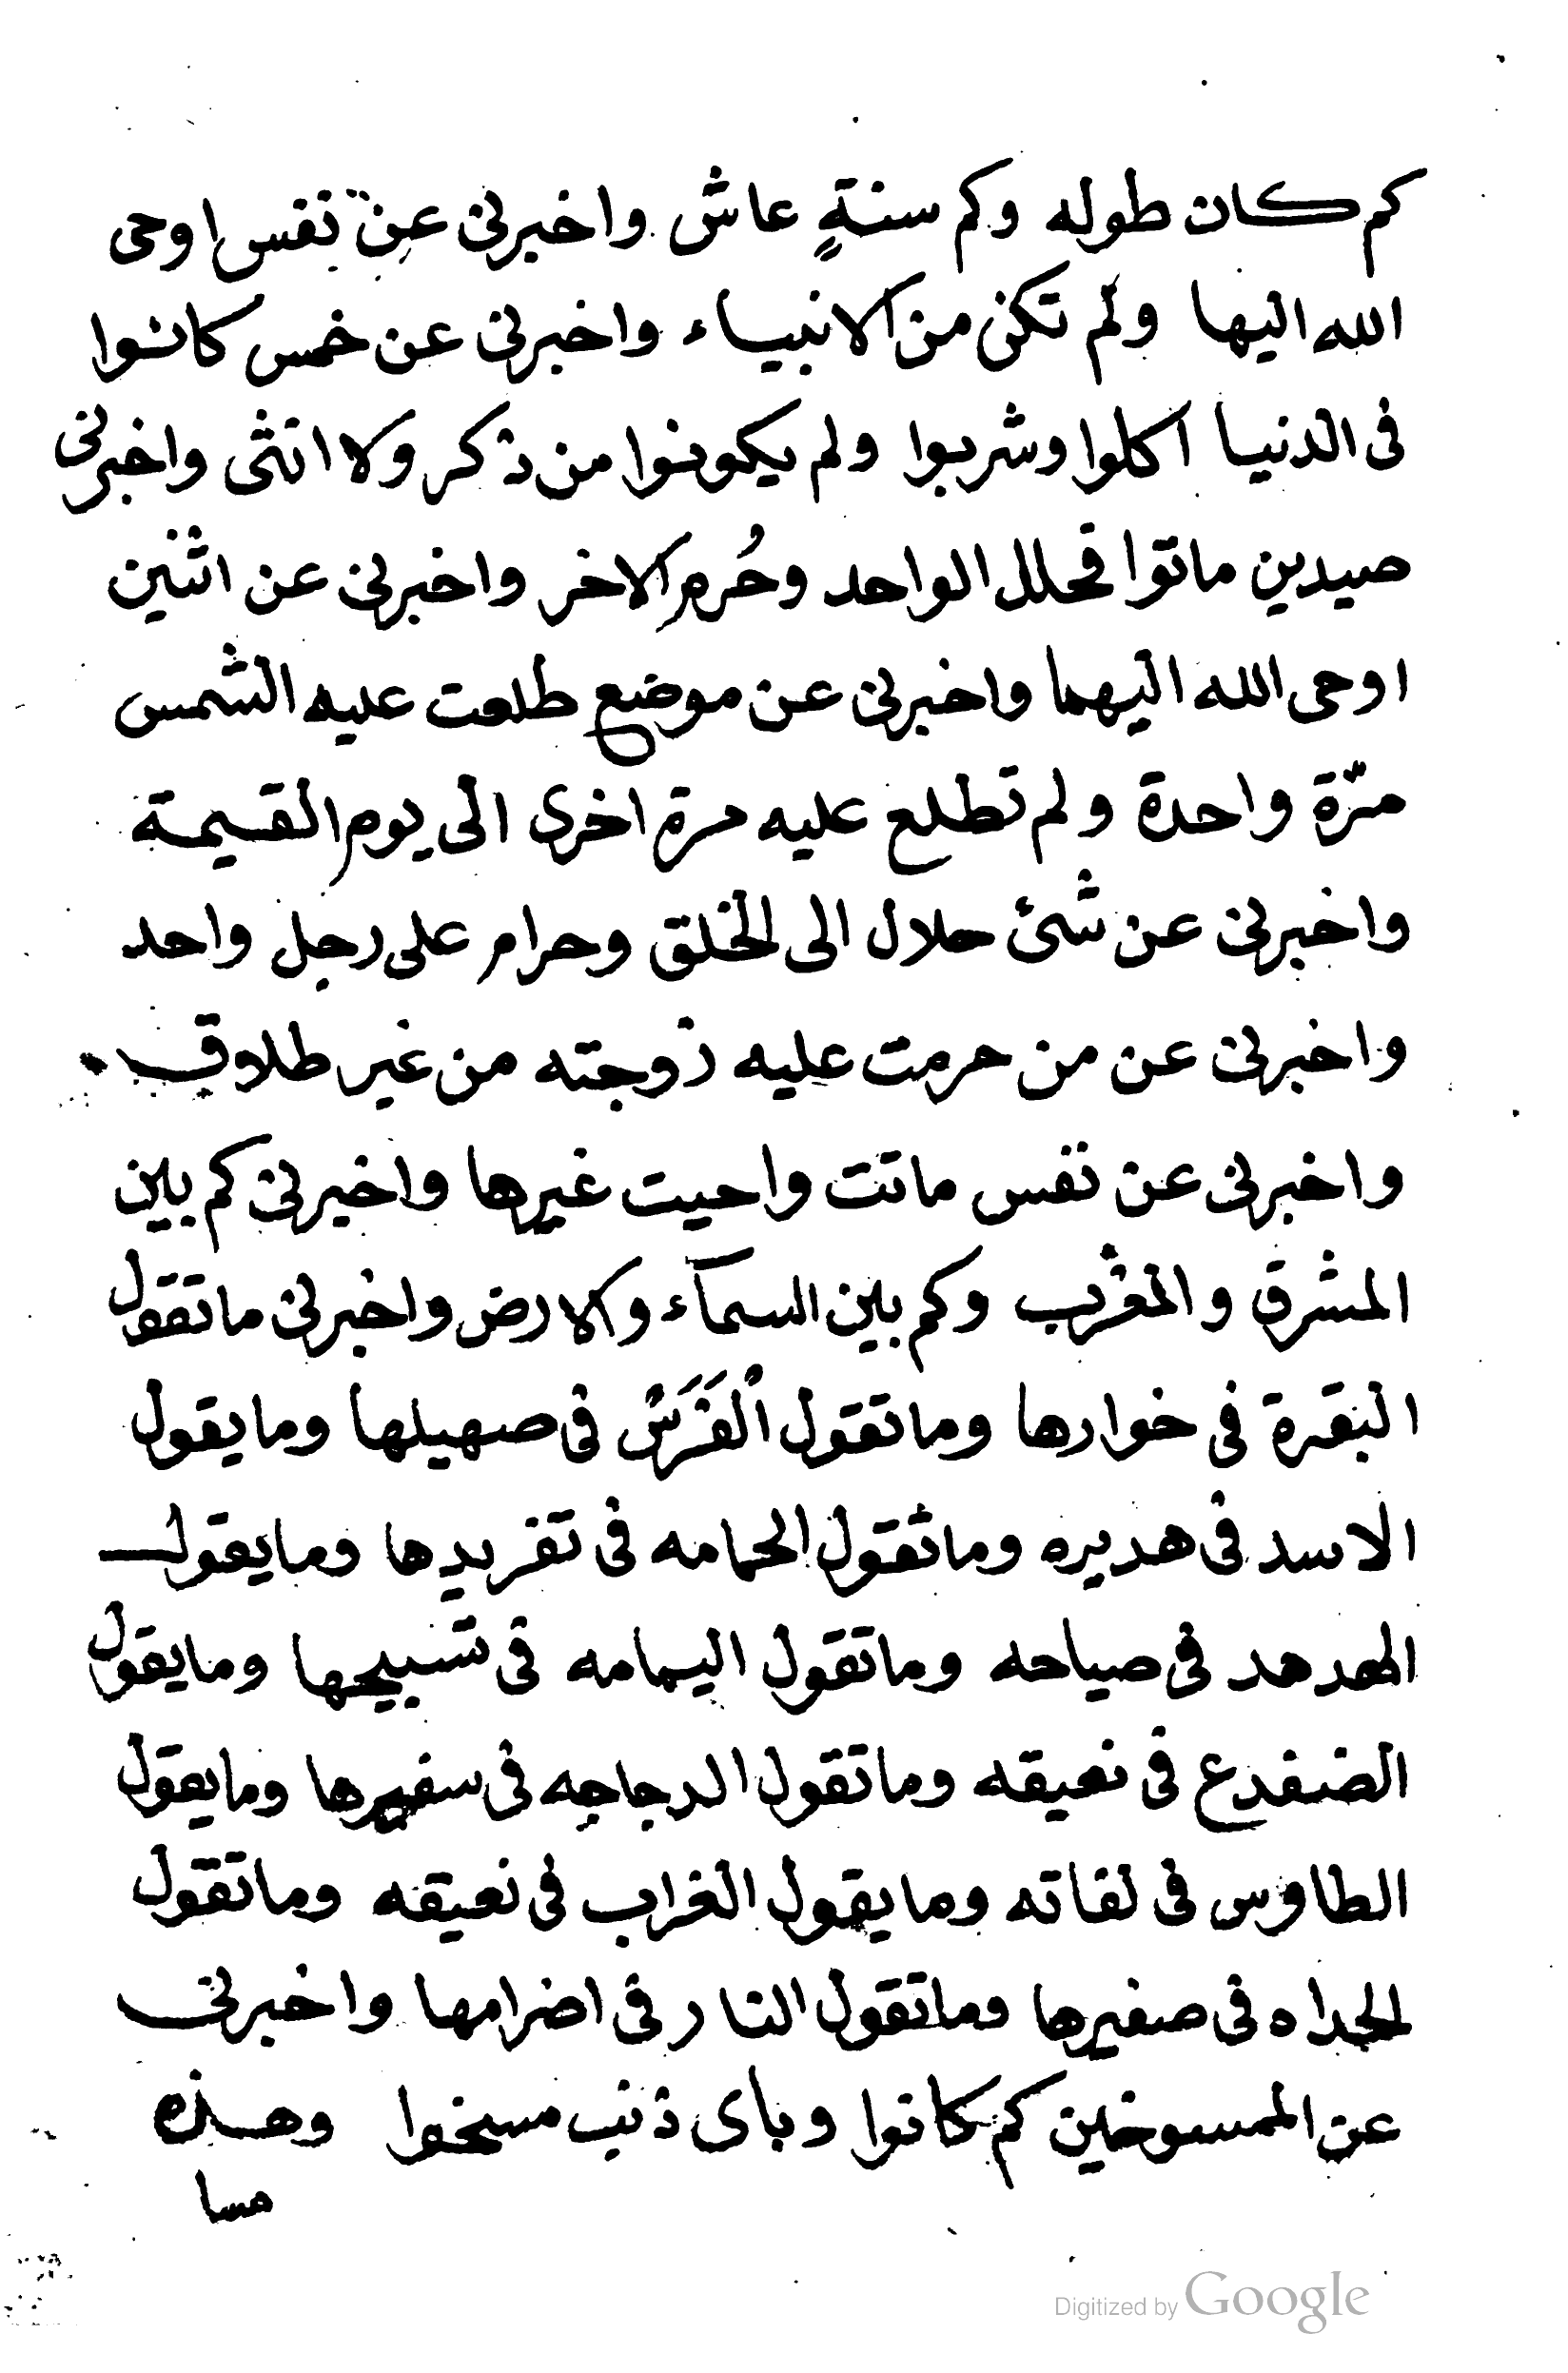 كم كان طوله وكم سنةٍ عاش واخبرنى عن نفس اوحى
الله اليها ولم تكن من الانبياء واخبرنى عن خمس كانوا
فى الدنيا اكلوا وشربوا ولم يكونوا من ذكر ولا انثى واخبرنى
صيدين ماتوا فحلل الواحد وحُرم الاخر واخبرنى عن اثنين
اوحى الله اليهما واخبرنى عن موضع طلعت عليه الشمس
مرّة واحدة ولم تطلع عليه مرة اخرى الى يوم القيمة
واخبرنى عن شئ حلال الى الخلق وحرام على رجل واحد
واخبرنى عن من حرمت عليه زوجته من غير طلاق
واخبرنى عن نفس ماتت واحيت غيرها واخبرنى كم بين
المشرق والمغرب وكم بين السمآء والارض واخبرنى ما تقول
البقرة فى خوارها وما تقول ٱلفَرَسُ فى صهيلها وما يقول
الاسد فى هديره وما تقول الحمامه فى تغريدها وما يقول
الهدهد فى صياحه وما تقول اليمامه فى تسبيحها وما يقول
الضفدع فى نعيقه وما تقول الدجاجه فى سفيرها وما يقول
الطاوس فى لغاته وما يقول الغراب فى نعيقه وما تقول
الحداه فى صفيرها وما تقول النار فى اضرامها واخبرنى
عن الممسوخين كم كانوا وباى ذنب مسخوا وهذه
مسا
Digitized by Google